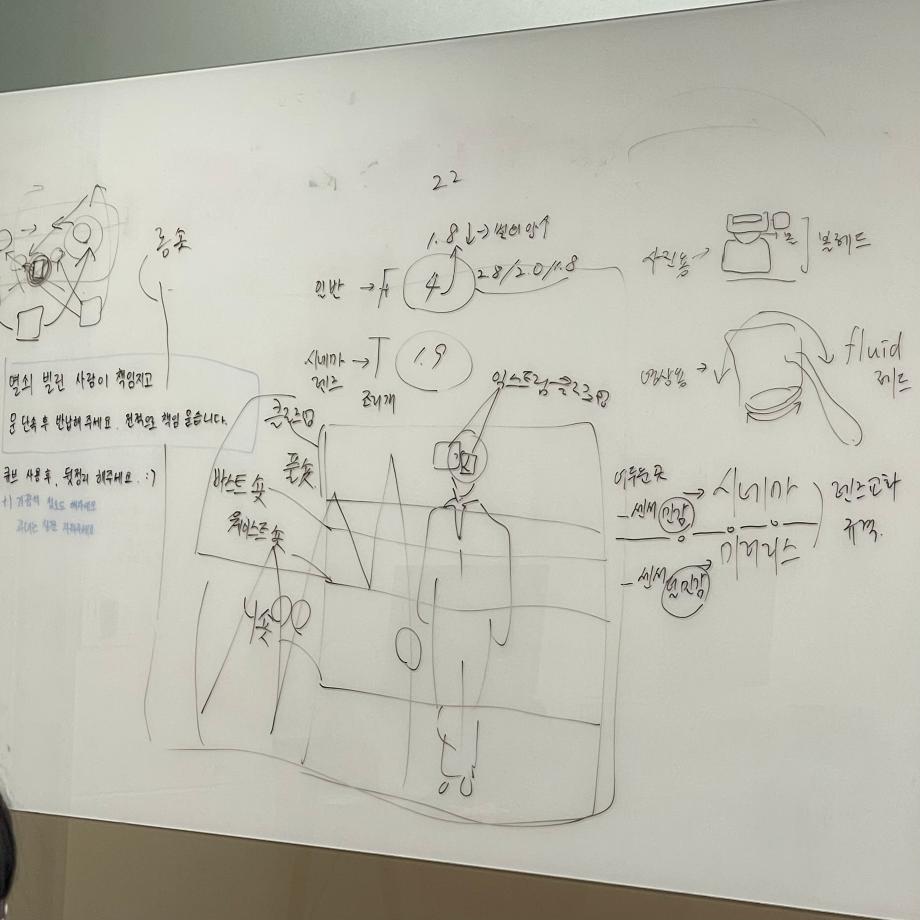 22
롱숏
1.8↓→빛의 양↑
일반 → F 4 2.8/2.0/1.8
시네마 렌즈 → T 1.9
조리개
사진용→
볼헤드
영상용→
fluid
헤드
열쇠 빌린 사람이 책임지고
문 단속 후 반납해주세요. 전적으로 책임 묻습니다.
큐브 사용 후, 뒷정리 해주세요. :)
익스트림→클로즈업
클로즈업
풀숏
바스트 숏
웨이스트숏
니숏
어두운 곳
- 센서 민감 → 시네마
미러리스
- 센서 덜 민감 →
렌즈교환
규격.